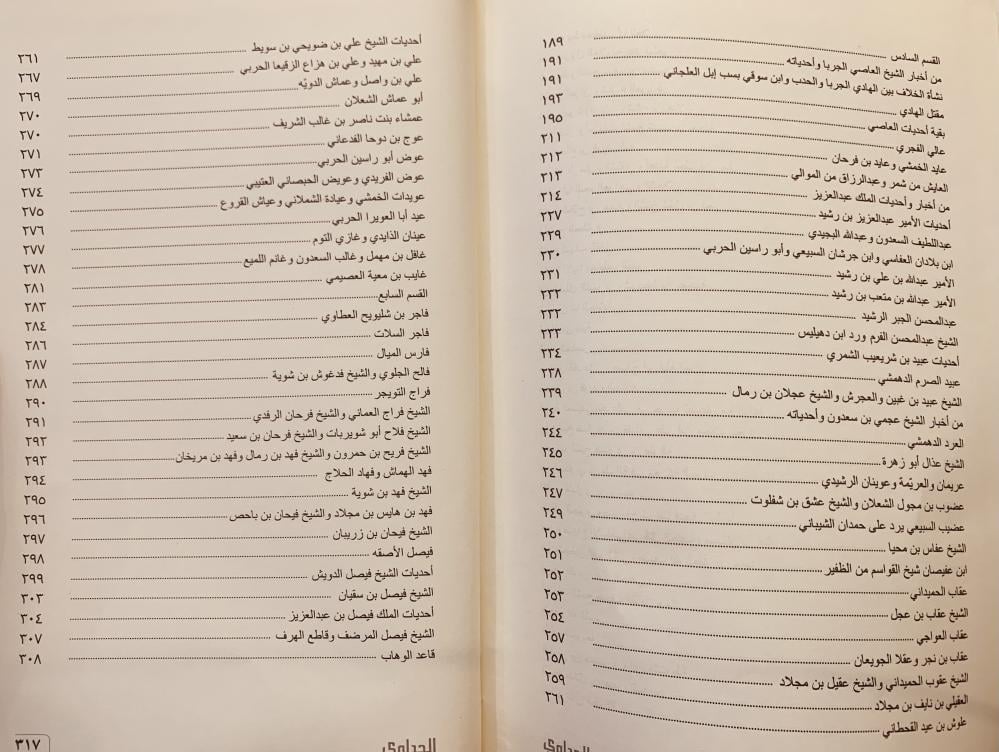 القسم السادس ........ ١٨٩
من أخبار الشيخ العاصي الجربا وأحدياته ........ ١٩١
نشأة الخلاف بين الهادي الجربا والحدب وابن سوقي بسب إبل العلجاني ........ ١٩١
مقتل الهادي ........ ١٩٣
بقية أحديات العاصي ........ ١٩٥
عالي الفجري ........ ٢١١
عايد الخمشي وعايد بن فرحان ........ ٢١٢
العايش من شمر وعبدالرزاق من الموالي ........ ٢١٣
من أخبار وأحديات الملك عبدالعزيز ........ ٢١٤
أحديات الأمير عبدالعزيز بن رشيد ........ ٢٢٧
عبداللطيف السعدون وعبدالله البجيدي ........ ٢٢٩
ابن بلادان العفاسي وابن جرشان السبيعي وأبو راسين الحربي ........ ٢٣٠
الأمير عبدالله بن علي بن رشيد ........ ٢٣١
الأمير عبدالله بن متعب بن رشيد ........ ٢٣٢
عبدالمحسن الجبر الرشيد ........ ٢٣٢
الشيخ عبدالمحسن الفرم ورد ابن دهيليس ........ ٢٣٣
أحديات عبيد بن شريعيب الشمري ........ ٢٣٤
عبيد الصرم الدهمشي ........ ٢٣٨
الشيخ عبيد بن غبين والعجرش والشيخ عجلان بن رمال ........ ٢٣٩
من أخبار الشيخ عجمي بن سعدون وأحدياته ........ ٢٤٠
العرد الدهمشي ........ ٢٤٤
الشيخ عذال أبو زهرة ........ ٢٤٥
عريمان والعريّمة وعوينان الرشيدي ........ ٢٤٦
عضوب بن مجول الشعلان والشيخ عشق بن شفلوت ........ ٢٤٧
عضيب السبيعي يرد على حمدان الشيباني ........ ٢٤٩
الشيخ عفاس بن محيا ........ ٢٥٠
ابن عفيصان شيخ القواسم من الظفير ........ ٢٥١
عقاب الحميداني ........ ٢٥٢
الشيخ عقاب بن عجل ........ ٢٥٣
عقاب العواجي ........ ٢٥٤
عقاب بن نجر وعقلا الجويعان ........ ٢٥٧
الشيخ عقوب الحميداني والشيخ عقيل بن مجلاد ........ ٢٥٨
العقيلي بن نايف بن مجلاد ........ ٢٥٩
علوش بن عيد القحطاني ........ ٢٦١
الحداوي
أحديات الشيخ علي بن ضويحي بن سويط ........ ٢٦١
علي بن مهيد وعلي بن هزاع الزقيعا الحربي ........ ٢٦٧
علي بن واصل وعماش الدويّه ........ ٢٦٩
أبو عماش الشعلان ........ ٢٧٠
عمشاء بنت ناصر بن غالب الشريف ........ ٢٧٠
عوج بن دوحا الفدعاني ........ ٢٧١
عوض أبو راسين الحربي ........ ٢٧٣
عوض الفريدي وعويض الحبصاني العتيبي ........ ٢٧٤
عويدات الخمشي وعيادة الشملاني وعياش القروع ........ ٢٧٥
عيد أبا العويرا الحربي ........ ٢٧٦
عينان الذايدي وغازي التوم ........ ٢٧٧
غافل بن مهمل وغالب السعدون وغانم اللميع ........ ٢٧٨
غايب بن معية العصيمي ........ ٢٨١
القسم السابع ........ ٢٨٣
فاجر بن شليويح العطاوي ........ ٢٨٤
فاجر السلات ........ ٢٨٦
فارس الميال ........ ٢٨٧
فالح الجلوي والشيخ فدغوش بن شوية ........ ٢٨٨
فراج التويجر ........ ٢٩٠
الشيخ فراج العماني والشيخ فرحان الرفدي ........ ٢٩١
الشيخ فلاح أبو شويربات والشيخ فرحان بن سعيد ........ ٢٩٢
الشيخ فريح بن حمرون والشيخ فهد بن رمال وفهد بن مريخان ........ ٢٩٣
فهد الهماش وفهاد الحلاج ........ ٢٩٤
الشيخ فهد بن شوية ........ ٢٩٥
فهد بن هايس بن مجلاد والشيخ فيحان بن باحص ........ ٢٩٦
الشيخ فيحان بن زريبان ........ ٢٩٧
فيصل الأصقه ........ ٢٩٨
أحديات الشيخ فيصل الدويش ........ ٢٩٩
الشيخ فيصل بن سقيان ........ ٣٠٣
أحديات الملك فيصل بن عبدالعزيز ........ ٣٠٤
الشيخ فيصل المرضف وقاطع الهرف ........ ٣٠٧
قاعد الوهاب ........ ٣٠٨
الحداوي
٣١٧